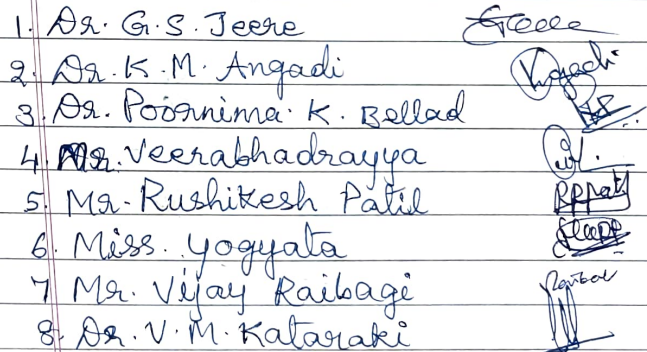 1. Dr. G. S. Jeere
2. Dr. K. M. Angadi
3. Dr. Poornima. K. Bellad
4. Mr. Veerabhadrayya
5. Mr. Rushikesh Patil RPPatil
6. Miss. Yogyata
7 Mr. Vijay Raibagi
8. Dr. V. M. Kataraki